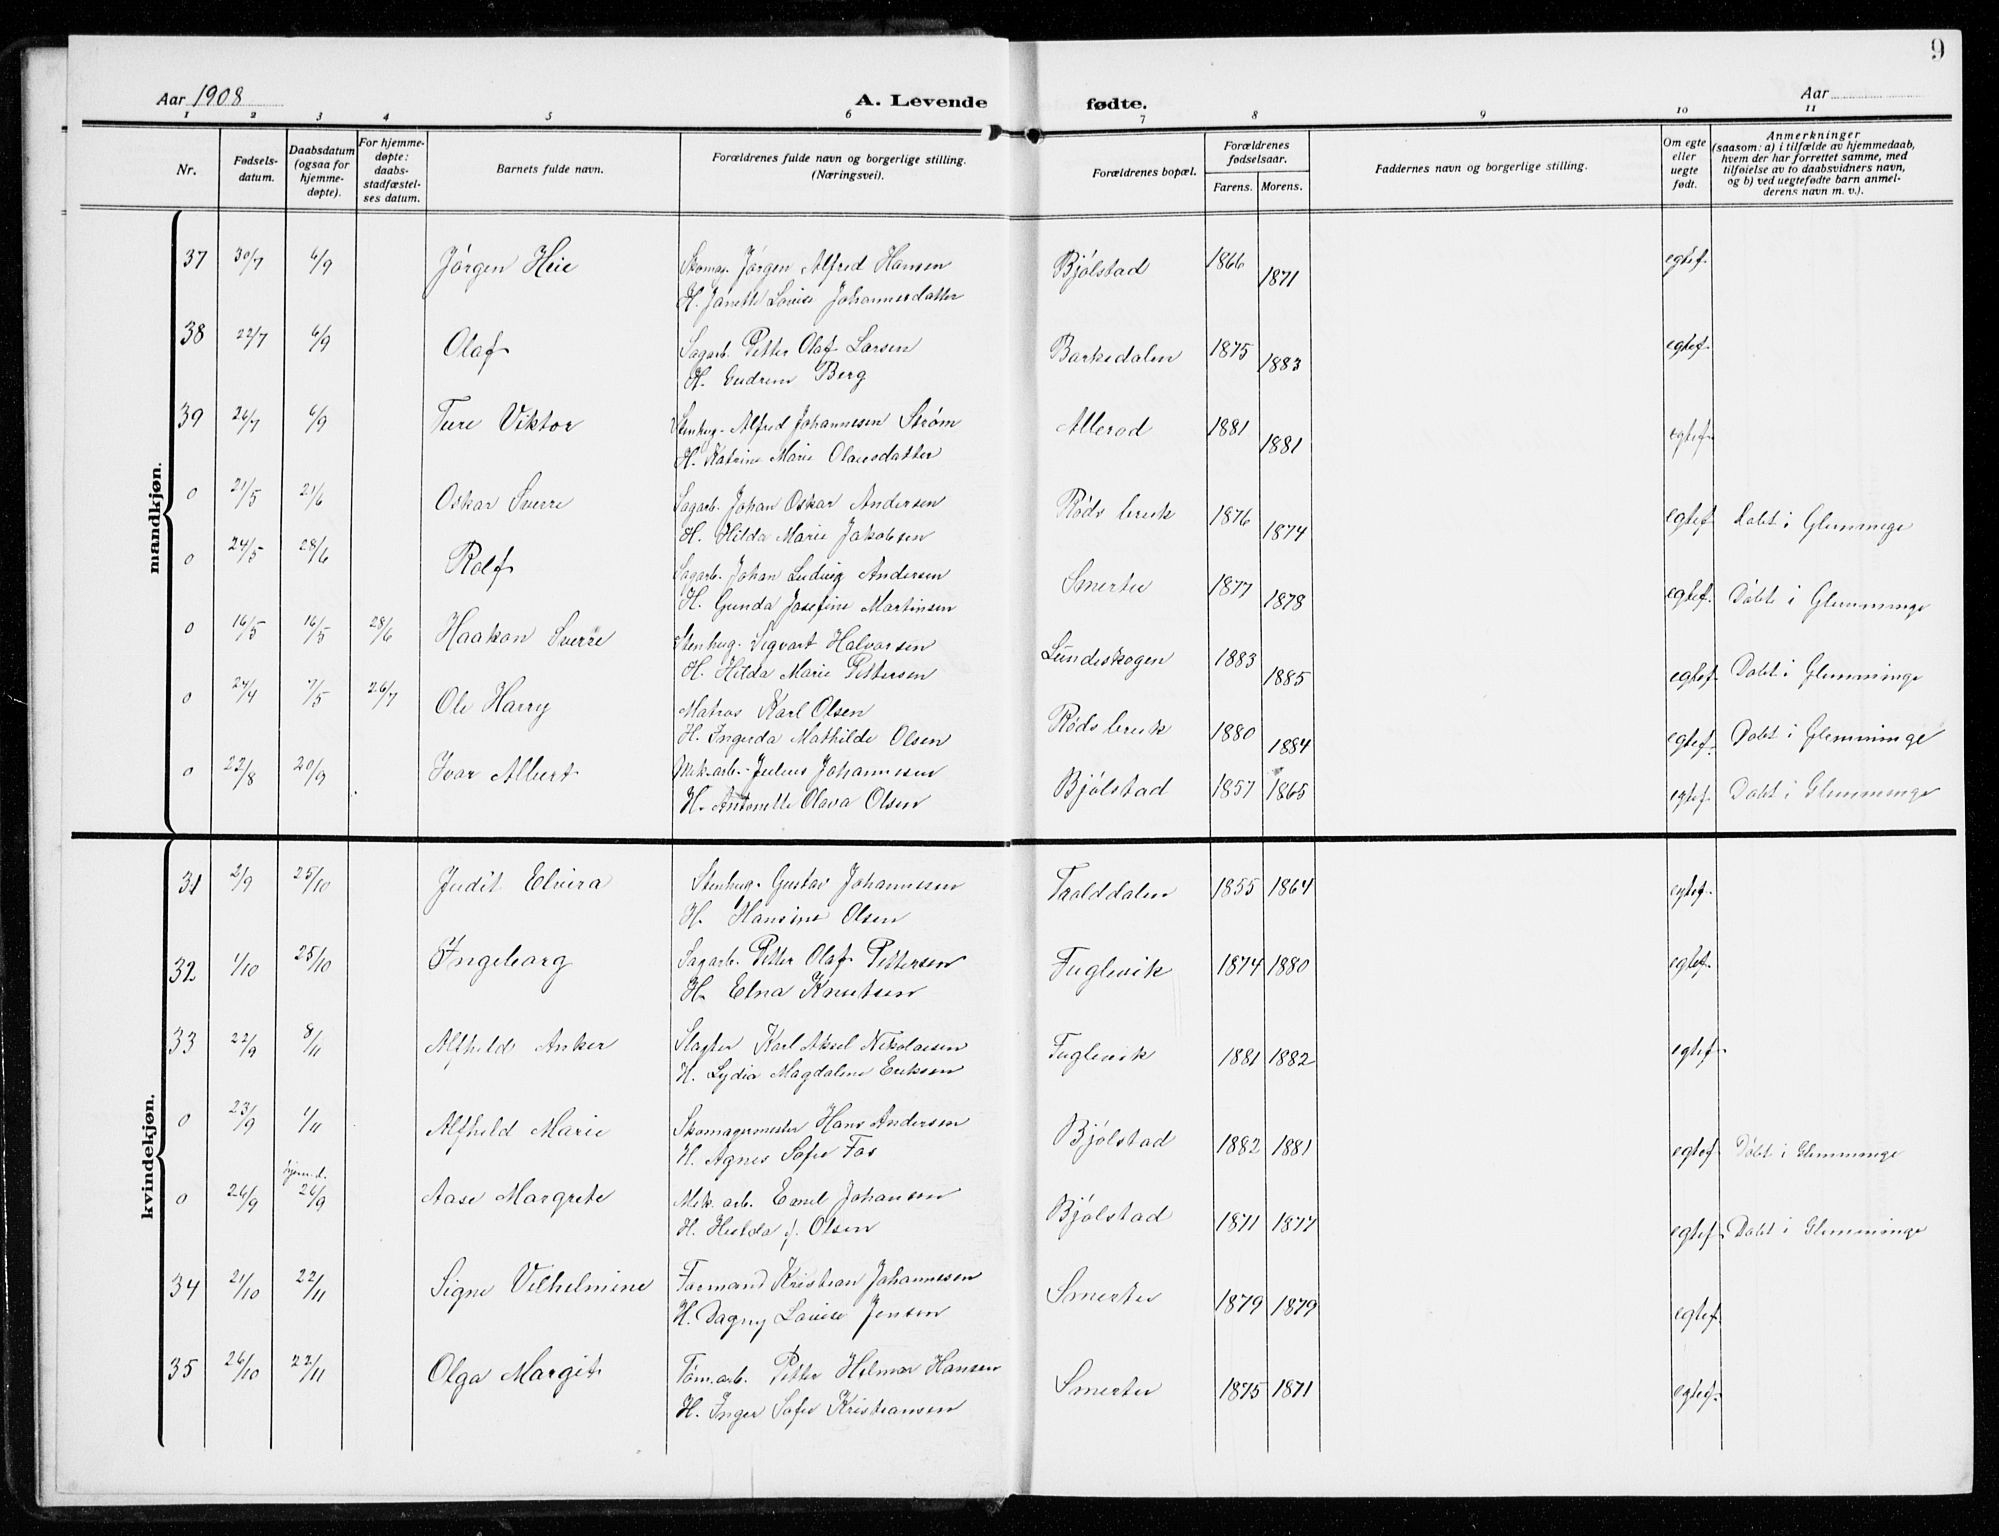 9
Aar 1908
A. Levende fødte.
Aar
1 2 3 4 5 6 7 8 9 10 11
Nr.
Fødsels-
datum.
Daabsdatum
(ogsaa for
hjemme-
døpte).
For hjemme-
døpte:
daabs-
stadfæstel-
ses datum.
Barnets fulde navn.
Forældrenes fulde navn og borgerlige stilling.
(Næringsvei).
Forældrenes bopæl.
Forældrenes
fødselsaar.
Farens. Morens.
Faddernes navn og borgerlige stilling.
Om egte
eller
uegte
født.
Anmerkninger
(saasom: a) i tilfælde av hjemmedaab,
hvem der har forrettet samme, med
tilføielse av to daabsvidners navn,
og b) ved uegtefødte barn anmel-
derens navn m. v.).
mandkjøn.
37 30/7 6/9 Jørgen Heie Skomag. Jørgen Alfred Hansen Bjølstad 1866 1871 egtef.
H. Janette Louise Johannesdatter
38 22/7 6/9 Olaf Sagarb. Petter Olaf Larsen Barkedalen 1875 1883 egtef.
H. Gudrun Berg
39 26/7 6/9 Ture Viktor Stenhug. Alfred Johannesen Strøm Allerød 1881 1881 egtef.
H. Katrine Marie Olausdatter
0 21/5 21/6 Oskar Sverre Sagarb. Johan Oskar Andersen Røds bruk 1876 1874 egtef. Døbt i Glemminge
H. Hilda Marie Jakobsen
0 24/5 28/6 Rolf Sagarb. Johan Ludvig Andersen Smertu 1877 1878 egtef. Døbt i Glemminge
H. Gunda Josefine Martinsen
0 16/5 16/5 28/6 Haakon Sverre Stenhug. Sigvart Halvorsen Lundeskogen 1883 1885 egtef. Døbt i Glemminge
H. Hilda Marie Pettersen
0 24/4 7/5 26/7 Ole Harry Matros Karl Olsen Røds bruk 1880 1884 egtef. Døbt i Glemminge
H. Ingerda Mathilde Olsen
0 22/8 20/9 Ivar Albert Mek.arb. Julius Johannesen Bjølstad 1857 1865 egtef. Døbt i Glemminge
H. Antonette Olava Olsen
kvindekjøn.
31 2/9 25/10 Judit Elvira Stenhug. Gustav Johannesen Taalddalen 1855 1864 egtef.
H. Hansine Olsen
32 1/10 25/10 Ingeborg Sagarb. Petter Olaf Pettersen Fuglevik 1874 1880 egtef.
H. Elna Knutsen
33 22/9 8/11 Alfhild Anker Slagter Karl Aksel Nikolaisen Fuglevik 1881 1882 egtef.
H. Lydia Magdalene Eriksen
0 23/9 1/11 Alfhild Marie Skomagermester Hans Andersen Bjølstad 1882 1881 egtef. Døbt i Glemminge
H. Agnes Sofie Fos
0 26/9 hjemd. 26/9 Aase Margrete Mek. arb. Emil Johansen Bjølstad 1871 1877 egtef. Døbt i Glemminge
H. Hulda f. Olsen
34 21/10 22/11 Signe Vilhelmine Formand Kristian Johannesen Smertu 1879 1879 egtef.
H. Dagny Louise Jensen
35 26/10 22/11 Olga Margit Tøm.arb. Petter Hilmar Hansen Smertu 1875 1871 egtef.
H. Inger Sofie Kristiansen